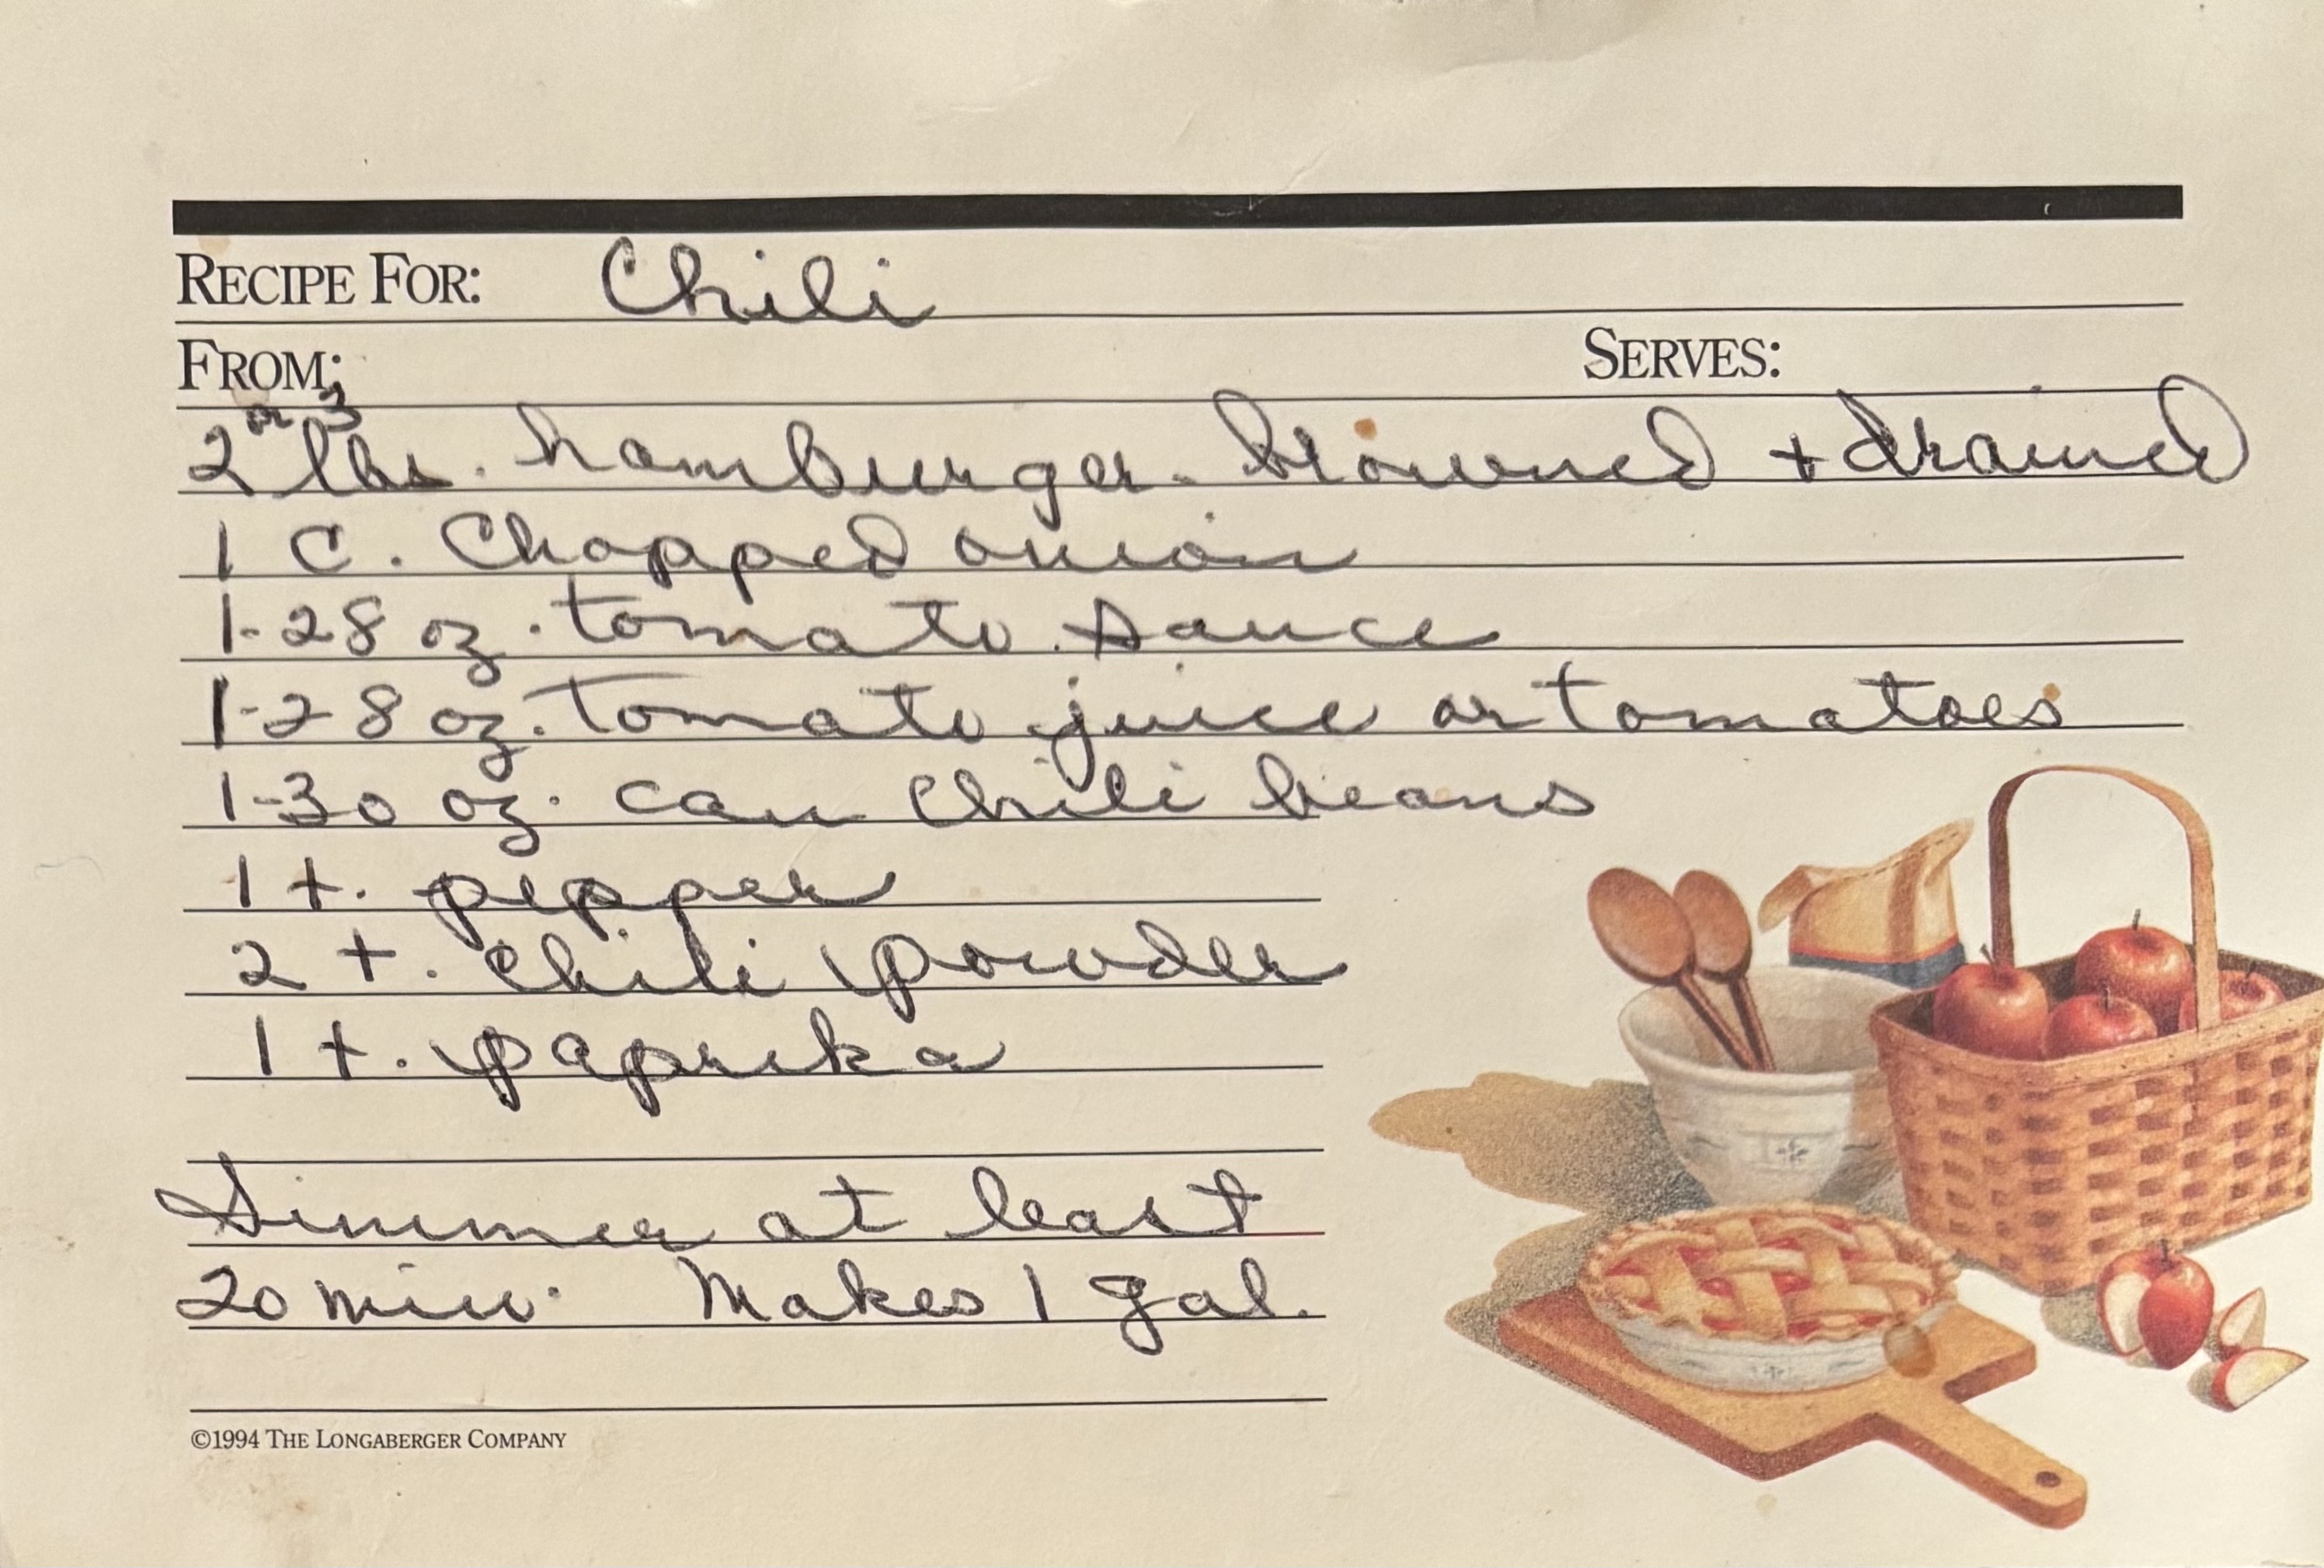 RECIPE FOR: Chili
FROM: SERVES:
2 or 3 lbs. hamburger - browned + drained
1 C. Chopped onion
1-28 oz. tomato sauce
1-28 oz. tomato juice or tomatoes
1-30 oz. can Chili beans
1 t. pepper
2 t. chili powder
1 t. paprika
Simmer at least
20 min. Makes 1 gal.
©1994 THE LONGABERGER COMPANY